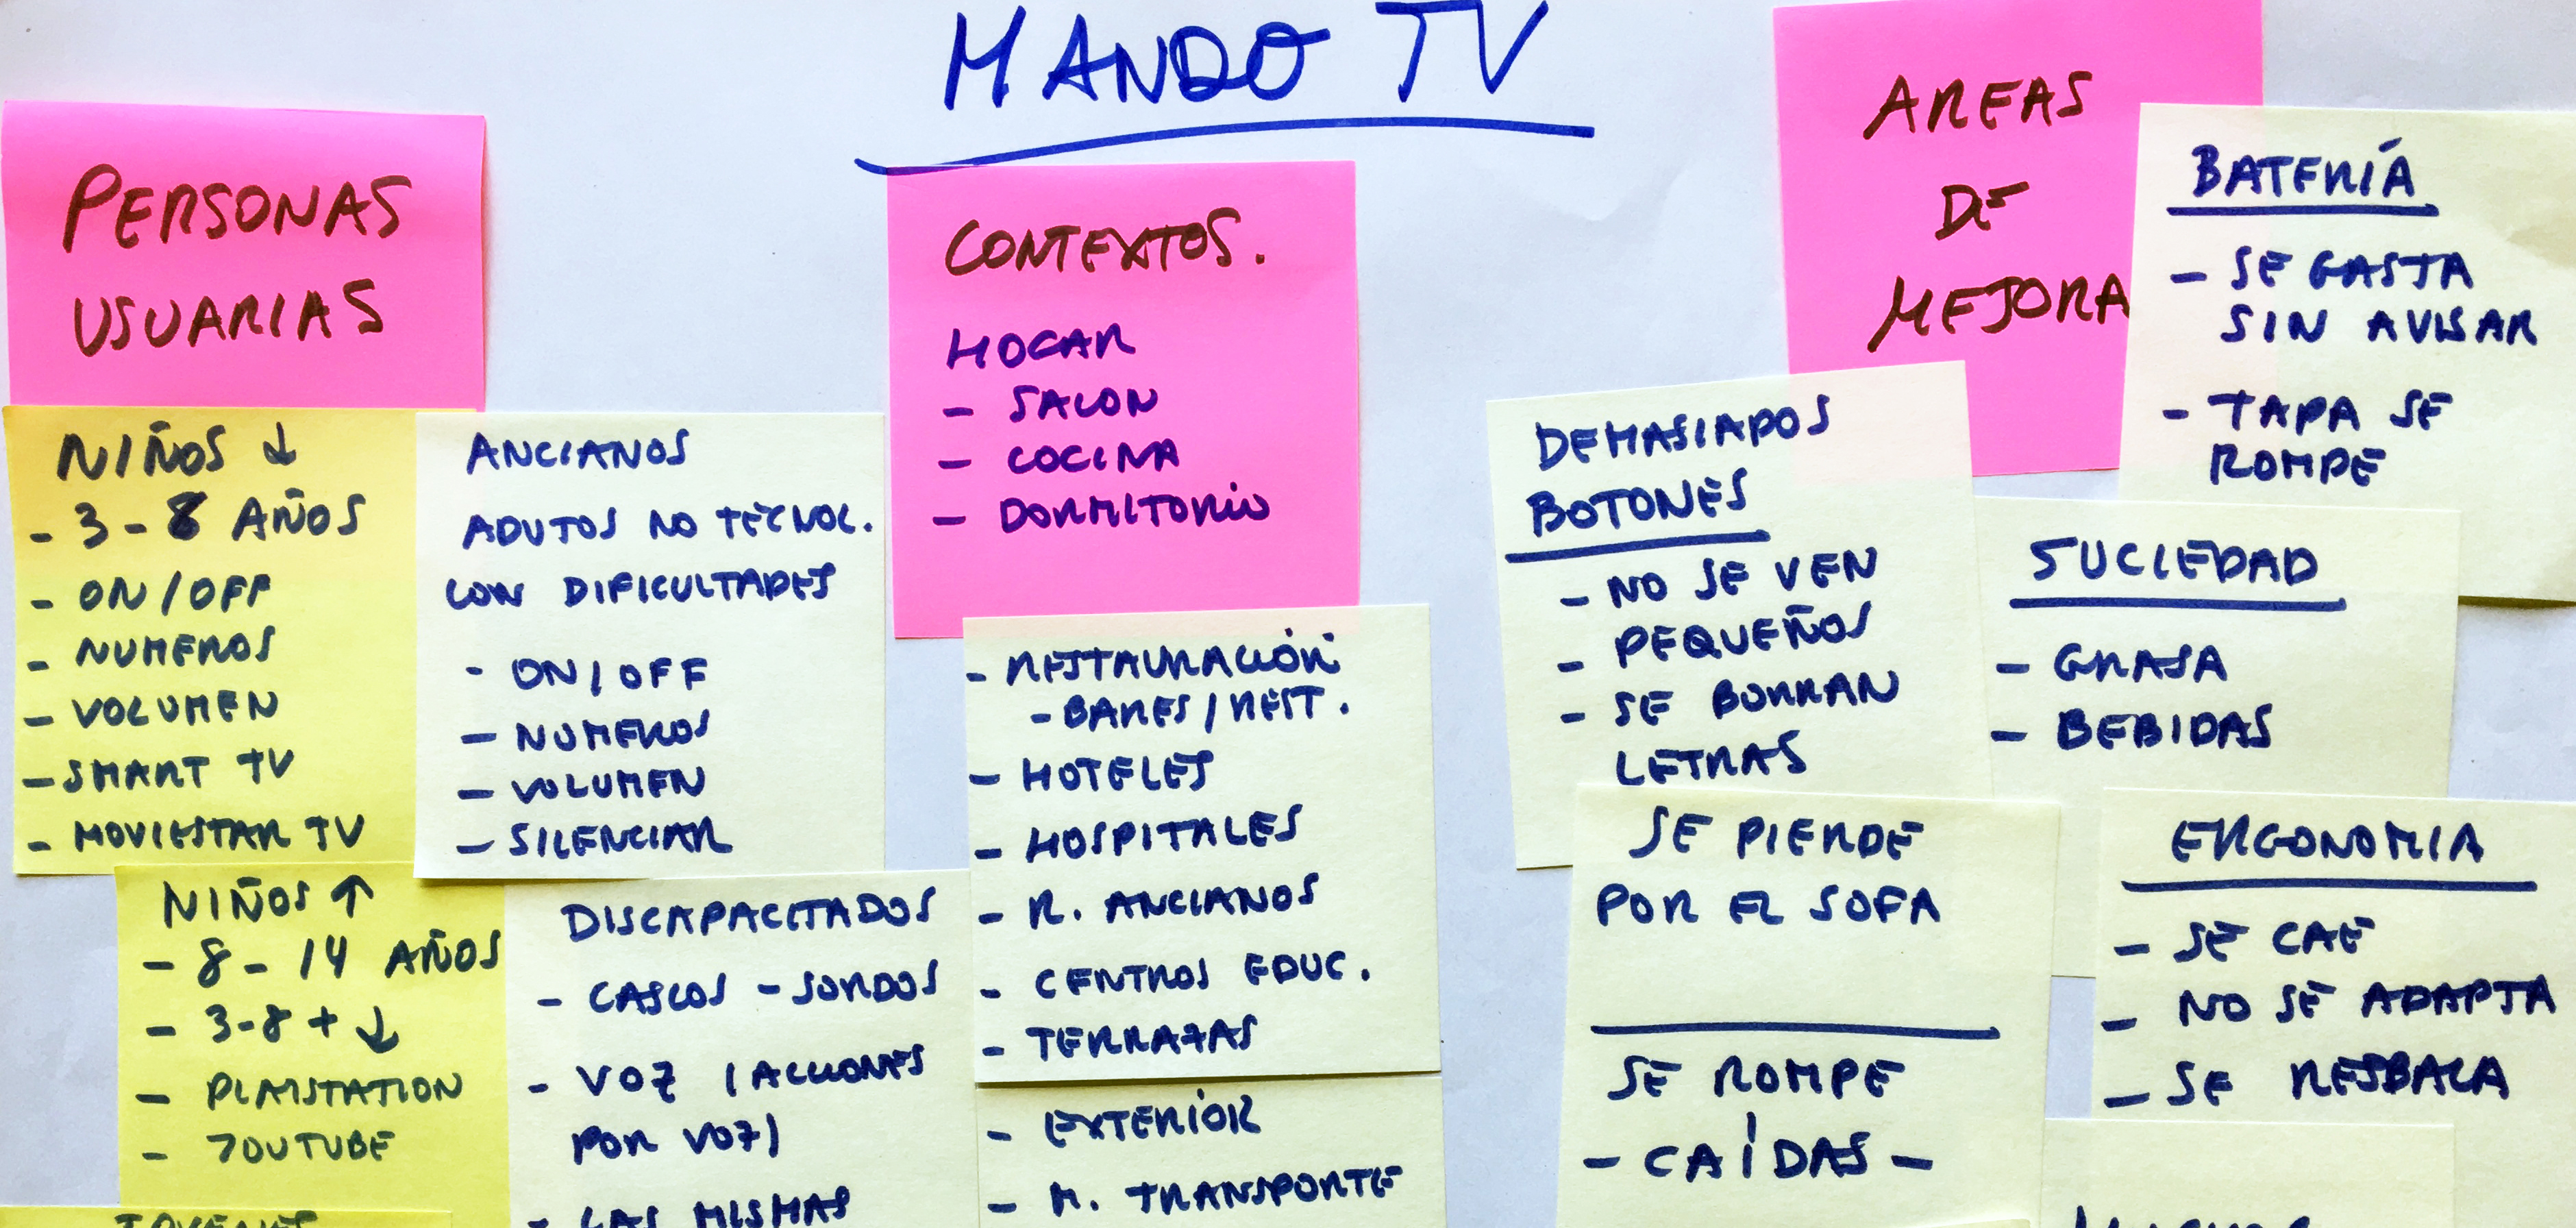 MANDO TV
PERSONAS
USUARIAS
NIÑOS ↓
- 3 - 8 AÑOS
- ON/OFF
- NUMEROS
- VOLUMEN
- SMART TV
- MOVIESTAR TV
NIÑOS ↑
- 8 - 14 AÑOS
- 3-8 + ↓
- PLAISTATION
- YOUTUBE
JOVENES
ANCIANOS
ADUTOS NO TECNOL.
CON DIFICULTADES
- ON/OFF
- NUMEROS
- VOLUMEN
- SILENCIAR
DISCAPACITADOS
- CASCOS - SORDOS
- VOZ (ACCIONES
POR VOZ)
- LAS MISMAS
CONTEXTOS.
HOGAR
- SALON
- COCINA
- DORMITORIO
- RESTAURACIÓN
- BARES/REST.
- HOTELES
- HOSPITALES
- R. ANCIANOS
- CENTROS EDUC.
- TERRAZAS
- EXTERIOR
- M. TRANSPORTE
AREAS
DE
MEJORA
BATERÍA
- SE GASTA
SIN AVISAR
- TAPA SE
ROMPE
DEMASIADOS
BOTONES
- NO SE VEN
- PEQUEÑOS
- SE BORRAN
LETRAS
SUCIEDAD
- GRASA
- BEBIDAS
SE PIERDE
POR EL SOFA
SE ROMPE
- CAÍDAS -
ERGONOMIA
- SE CAE
- NO SE ADAPTA
- SE RESBALA